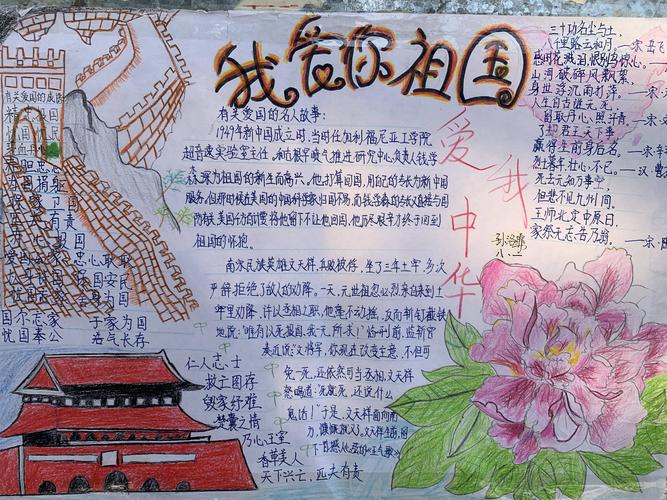 我爱你祖国
有关爱国的名人故事：
1949年新中国成立时，当时任加利福尼亚工学院
超音速实验室主任和古根罕喷气推进研究中心负责人钱学
森深为祖国的新生而高兴。他打算回国，用自己的专长为新中国
服务。但那时候在美国的中国科学家归国不易，而钱学森的专长又直接与国
防有关，美国
将他留下不让他回国，他历尽艰辛才终于回到
祖国的怀抱。
南宋民族英雄文天祥，兵败被俘，坐了三年土牢，多次
严辞拒绝了敌人的劝降。一天，元世祖忽必烈亲自来到土
牢里劝降，许以丞相之职，他毫不动摇，反而斩钉截铁
地说："唯有以死报国，我一无所求！"临刑前，监斩官
凑近说："文将军，你现在改变主意，不但可
免一死，还依然可当丞相。文天祥
怒喝道："死就死，还说什么
鬼话！"于是，文天祥面向南
方，慷慨就义。文天祥生前，留
爱我中华
有关爱国的成语
忧国忘家
忧国奉公
于家为国
浩气长存
保国安民
舍身为国
忠心耿耿
仁人志士
救亡图存
毁家纾难
楚囊之情
乃心王室
香草美人
天下兴亡，匹夫有责
三十功名尘与土，
八千里路云和月。
感时花溅泪，恨别鸟惊心。
山河破碎风飘絮，
身世浮沉雨打萍。
人生自古谁无死，
留取丹心照汗青。
了却君王天下事，
赢得生前身后名。
烈士暮年，壮心不已。
死去元知万事空，
但悲不见九州同。
王师北定中原日，
家祭无忘告乃翁。